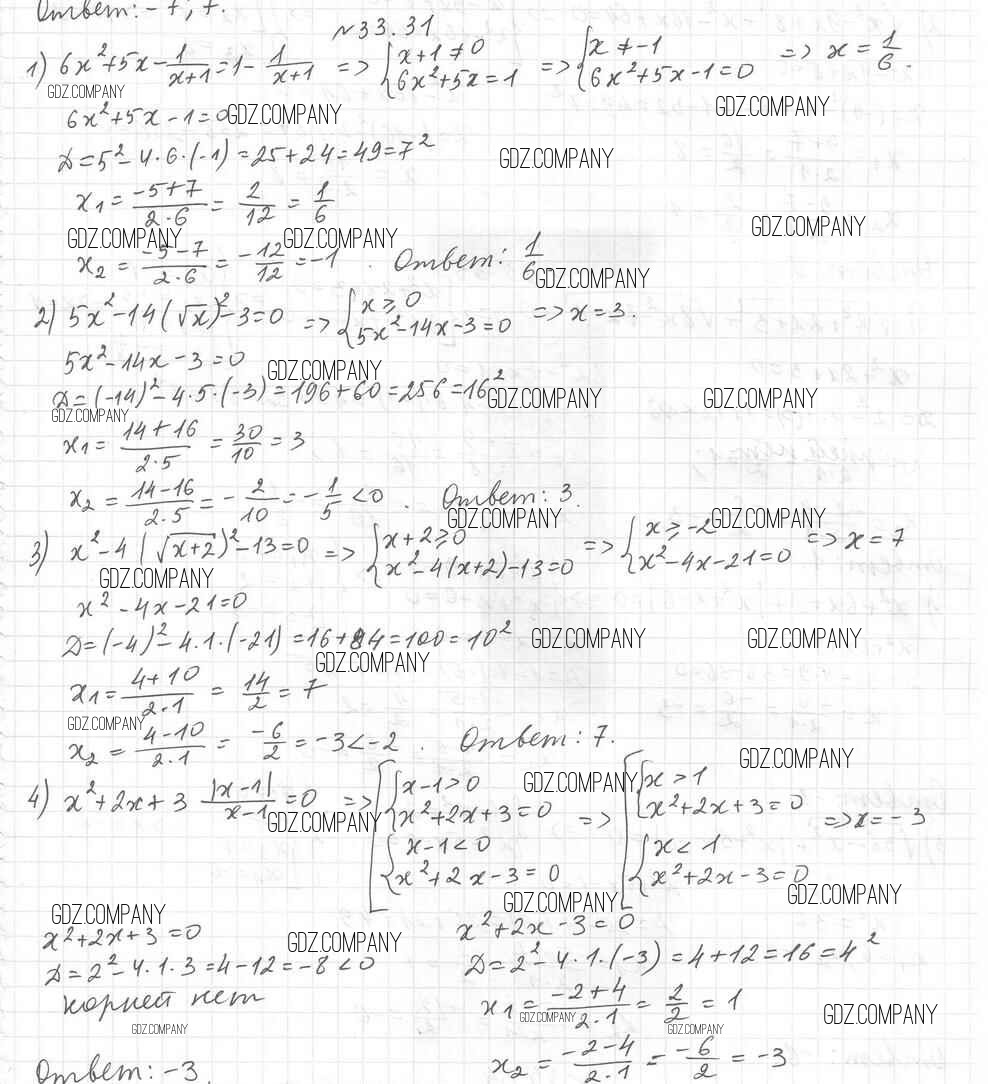 Ответ: -7; 7.
№33.31
1) 6x²+5x-1/(x+1)=1-1/(x+1) => {x+1≠0 {6x²+5x=1 => {x≠-1 {6x²+5x-1=0 => x=1/6.
GDZ.COMPANY
6x²+5x-1=0 GDZ.COMPANY GDZ.COMPANY
Д=5²-4·6·(-1)=25+24=49=7² GDZ.COMPANY
x₁=(-5+7)/(2·6)=2/12=1/6
GDZ.COMPANY GDZ.COMPANY GDZ.COMPANY
x₂=(-5-7)/(2·6)=-12/12=-1. Ответ: 1/6
GDZ.COMPANY
2) 5x²-14(√x)²-3=0 => {x≥0 {5x²-14x-3=0 => x=3.
5x²-14x-3=0 GDZ.COMPANY
Д=(-14)²-4·5·(-3)=196+60=256=16² GDZ.COMPANY GDZ.COMPANY
GDZ.COMPANY
x₁=(14+16)/(2·5)=30/10=3
x₂=(14-16)/(2·5)=-2/10=-1/5<0. Ответ: 3.
GDZ.COMPANY GDZ.COMPANY
3) x²-4(√(x+2))²-13=0 => {x+2≥0 {x²-4(x+2)-13=0 => {x≥-2 {x²-4x-21=0 => x=7
GDZ.COMPANY
x²-4x-21=0
Д=(-4)²-4·1·(-21)=16+84=100=10² GDZ.COMPANY GDZ.COMPANY
GDZ.COMPANY
x₁=(4+10)/(2·1)=14/2=7
GDZ.COMPANY
x₂=(4-10)/(2·1)=-6/2=-3<-2. Ответ: 7.
GDZ.COMPANY GDZ.COMPANY
4) x²+2x+3 |x-1|/(x-1)=0 => [{x-1>0 {x²+2x+3=0 {x-1<0 {x²+2x-3=0 => [{x>1 {x²+2x+3=0 {x<1 {x²+2x-3=0 => x=-3
GDZ.COMPANY
GDZ.COMPANY GDZ.COMPANY
GDZ.COMPANY
x²+2x+3=0
GDZ.COMPANY
Д=2²-4·1·3=4-12=-8<0
корней нет
GDZ.COMPANY
x²+2x-3=0
Д=2²-4·1·(-3)=4+12=16=4²
x₁=(-2+4)/(2·1)=2/2=1
GDZ.COMPANY GDZ.COMPANY
GDZ.COMPANY
x₂=(-2-4)/(2·1)=-6/2=-3
Ответ: -3